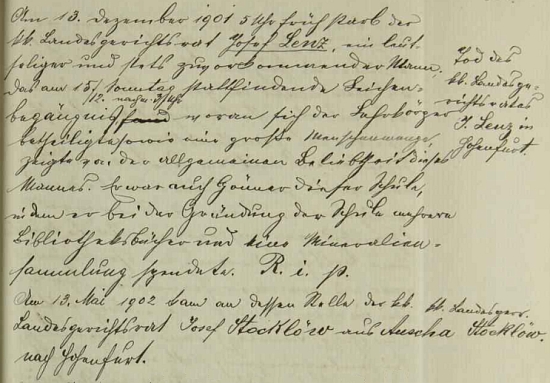 Am 13. Dezember 1901 5 Uhr früh starb der
kk. Landesgerichtsrat Josef Lenz, ein leut-
seliger und stets zuvorkommender Mann,
Das am 15/12. Sonntag nachm. 3 Uhr stattfindende Leichen-
begängnis, woran sich der Lehrkörper
betheiligte sowie eine große Menschenmenge,
zeigte von der allgemeinen Beliebtheit dieses
Mannes. Er war auch Gönner dieser Schule,
indem er bei der Gründung der Schule mehrere
Bibliotheksbücher und eine Mineralien-
sammlung spendete. R. i. p.
Tod des
kk. Landesge-
richtsrates
J. Lenz in
Hohenfurt.
Am 13. Mai 1902 kam an dessen Stelle der kk.
Landesgerichtsrat Josef Stocklöw aus Auscha
nach Hohenfurt.
kk. Landesger.
Stocklöw.